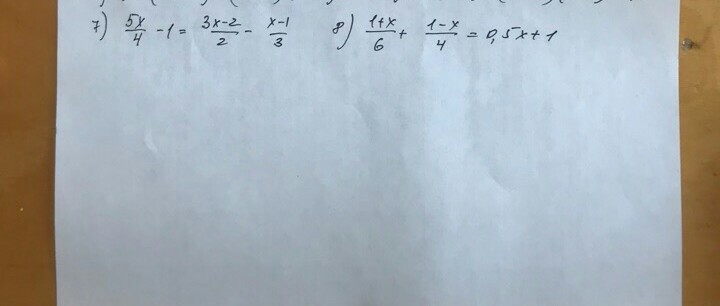 7) 5x/4 - 1 = 3x-2/2 - x-1/3 8) 1+x/6 + 1-x/4 = 0,5x+1